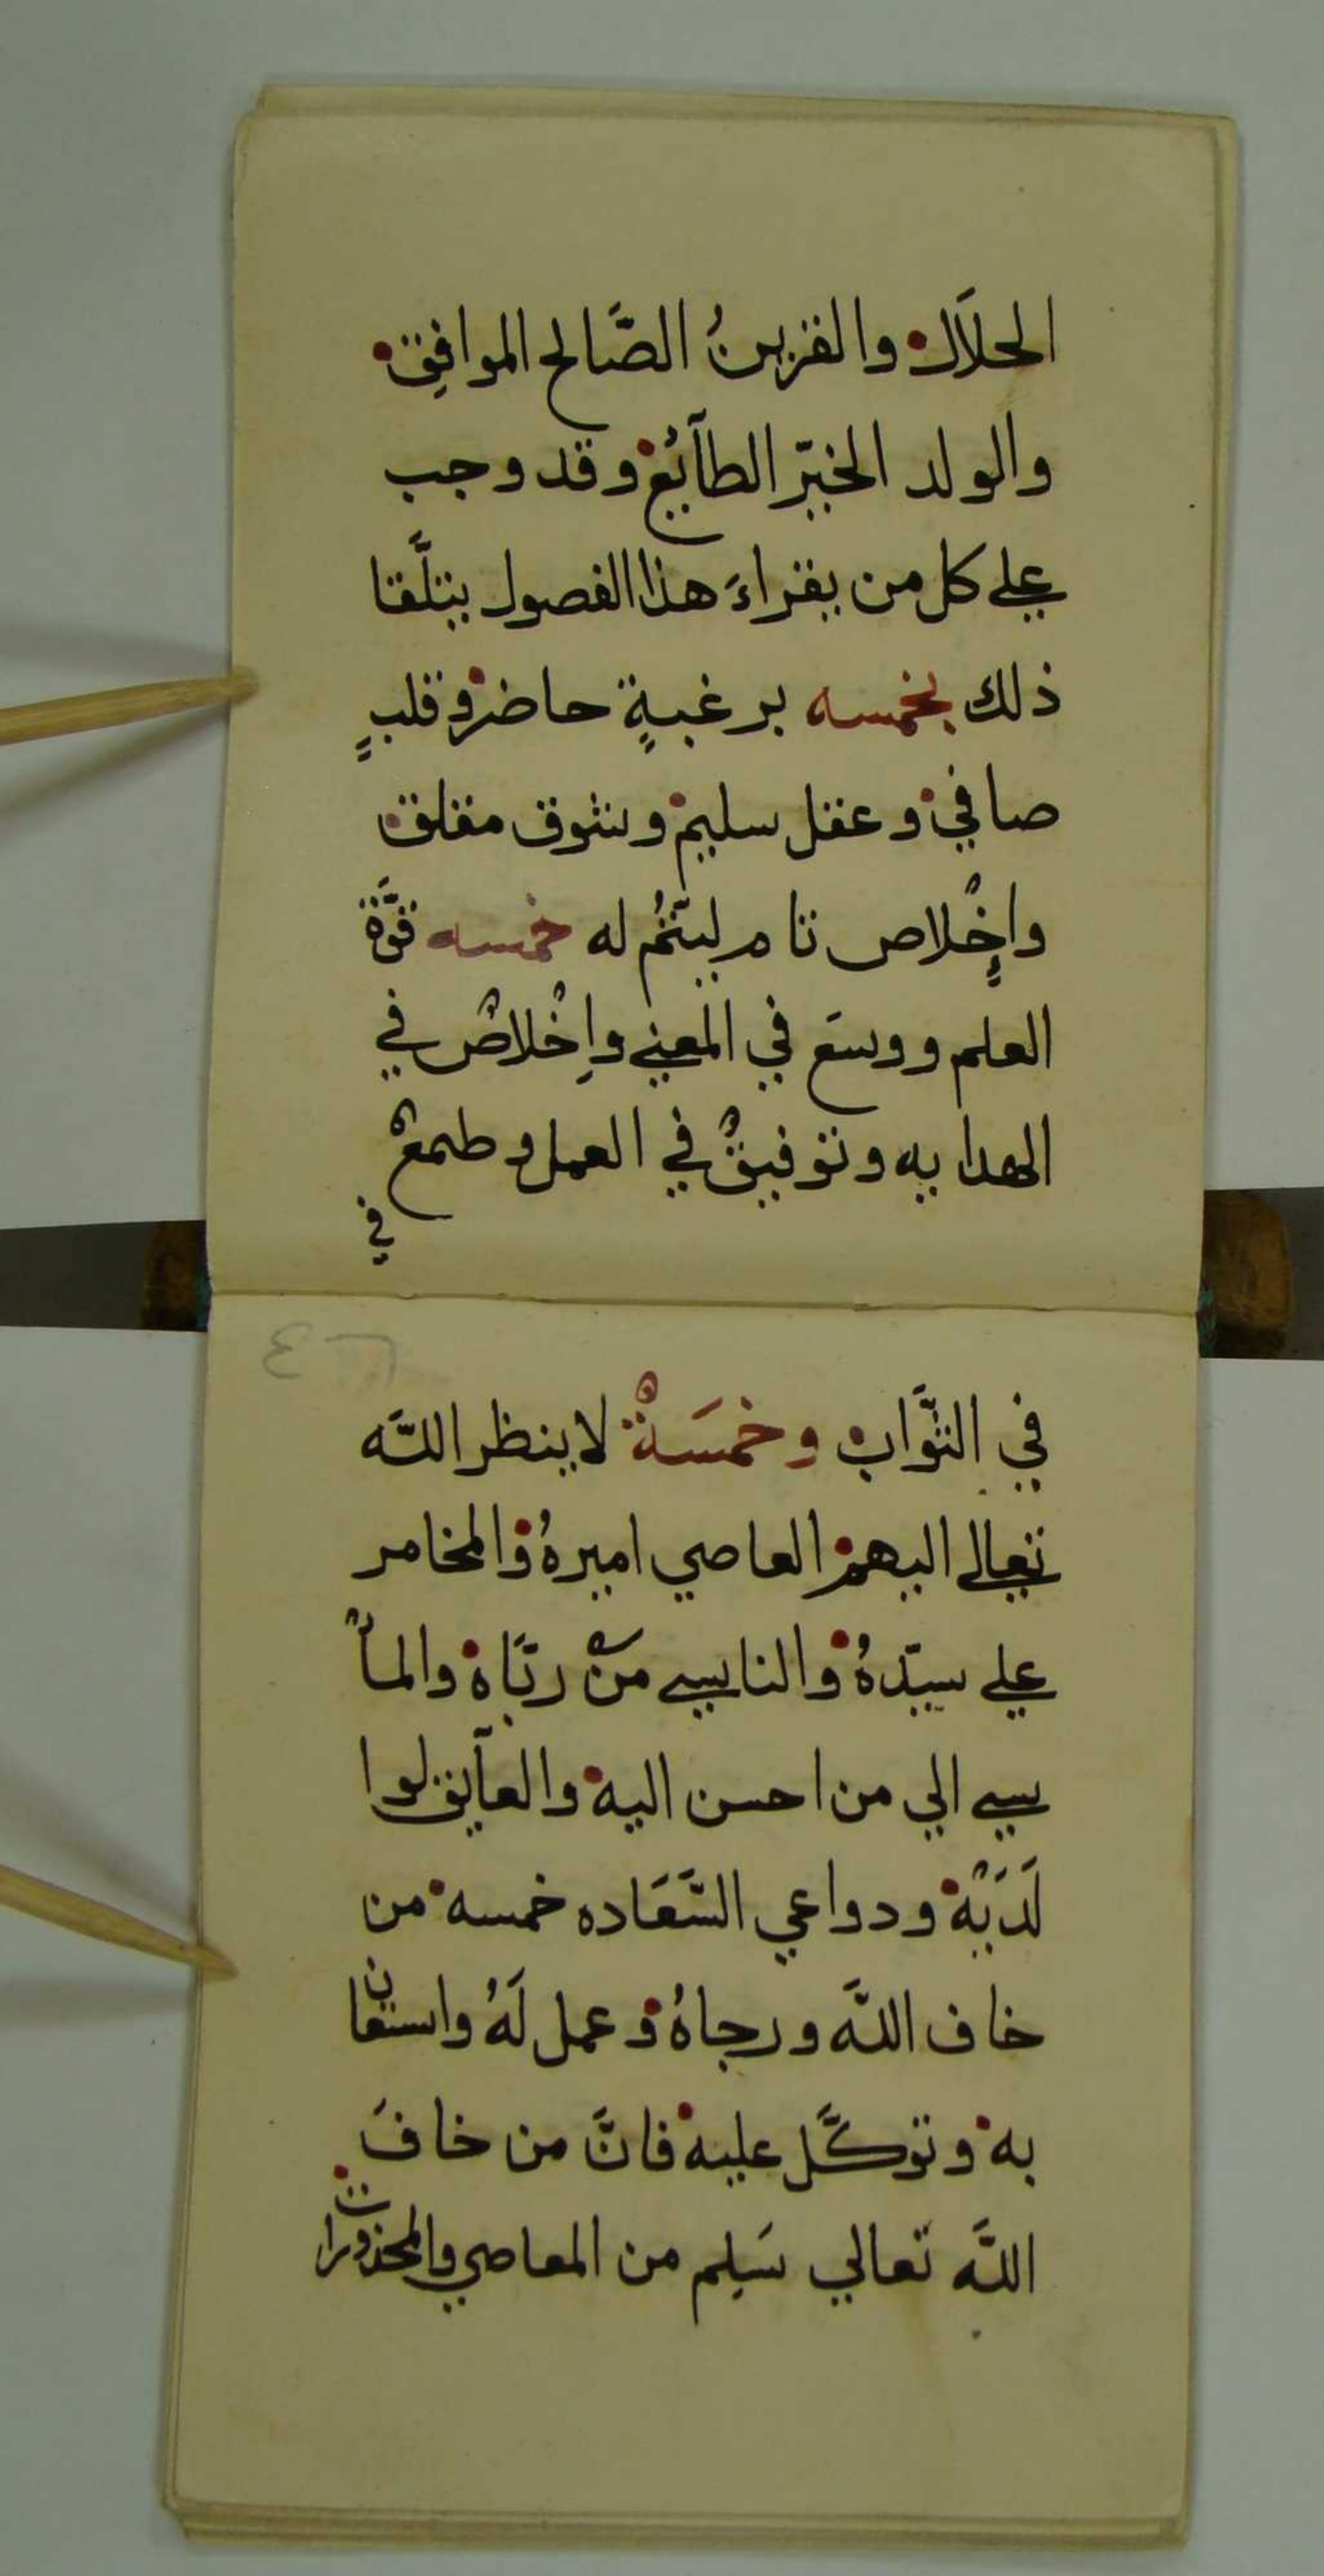 الحلَال والقرينُ الصَّالح الموافِق
والولد الخيّر الطآئِع وقد وجب
علي كل من يقراءَ هذا الفصول يتلَّقا
ذلك بخمسه برغبةٍ حاضره وقلبٍ
صافي وعقل سليم وشوق مقلق
واِخْلاص تام ليتمُ له خمسه قوَّة
العلم ووسَع في المعني واِخْلاصٌ في
الهدايه وتوفيقٌ في العمل وطمعٌ
في
في الثوَّاب وخمسَةٌ لا ينظر اللَّه
تعالي اليهم العاصي اميرهُ والمخامر
علي سيّدهُ والناسي منْ ربَّاه والمأ
سي الي من احسن اليه والعآيق لوا
لَدَيْه ودواعي السَّعَاده خمسه من
خاف اللَّه ورجاهُ وعمل لَهُ واستعان
به وتوكَّل عليه فانَّ من خافَ
اللَّه تعالي سَلِم من المعاصي والمحذورات